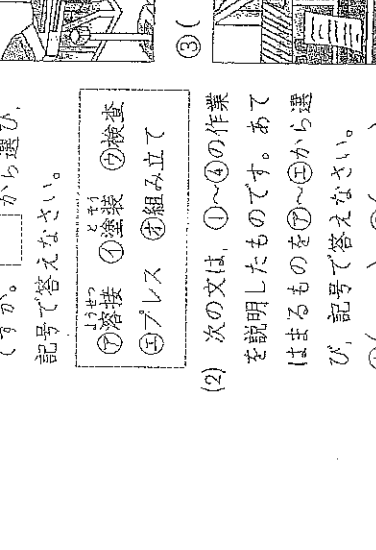 すか。 から選び,
記号で答えなさい。
ようせつ とそう
㋐溶接 ㋑塗装 ㋒検査
㋓プレス ㋔組み立て
(2) 次の文は, ①〜④の作業
を説明したものです。あて
はまるものを㋐〜㋓から選
び, 記号で答えなさい。
③(